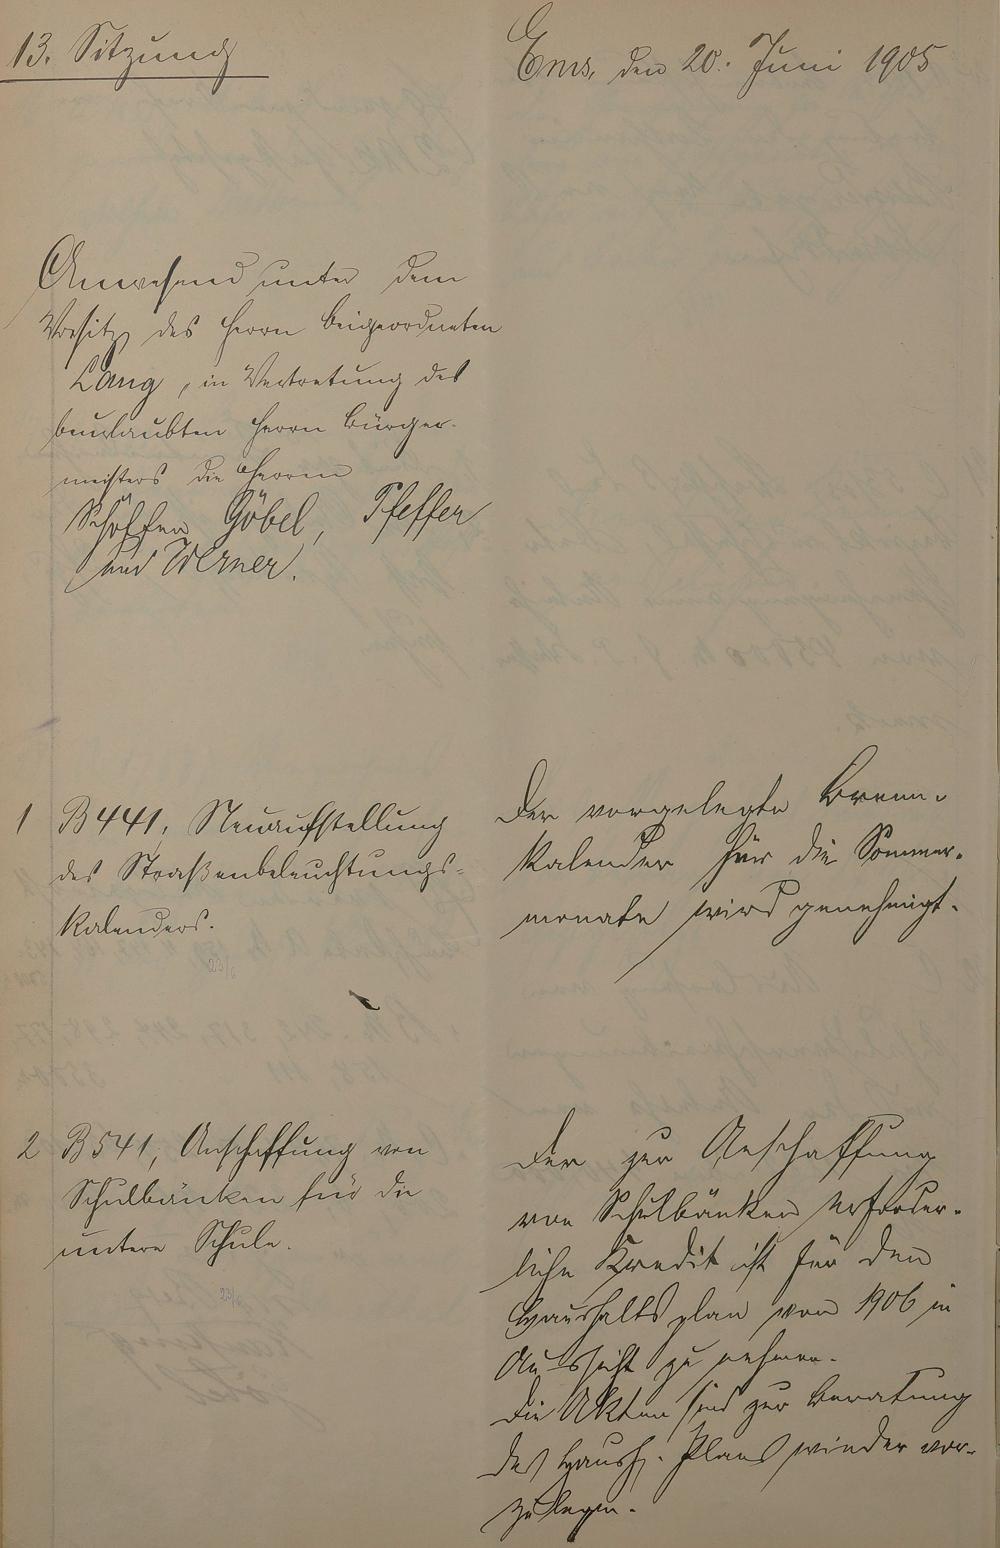 13. Sitzung
Ems, den 20. Juni 1905
Anwesend unter dem
Vorsitz des Herrn Beigeordneten
Lang, in Vertretung des
beurlaubten Herrn Bürger-
meisters die Herren
Schöffen Göbel, Pfeffer
und Werner.
1 B 441, Neuaufstellung
des Straßenbeleuchtungs-
kalenders.
23/6
Der vorgelegte Brenn-
kalender für die Sommer-
monate wird genehmigt.
2 B 541, Anschaffung von
Schulbänken für die
untere Schule.
23/6
Der zur Anschaffung
von Schulbänken erforder-
liche Kredit ist für den
Haushaltsplan von 1906 in
Aussicht zu nehmen.
Die Akten sind zur Beratung
des Haush. Plans wieder vor-
zulegen.